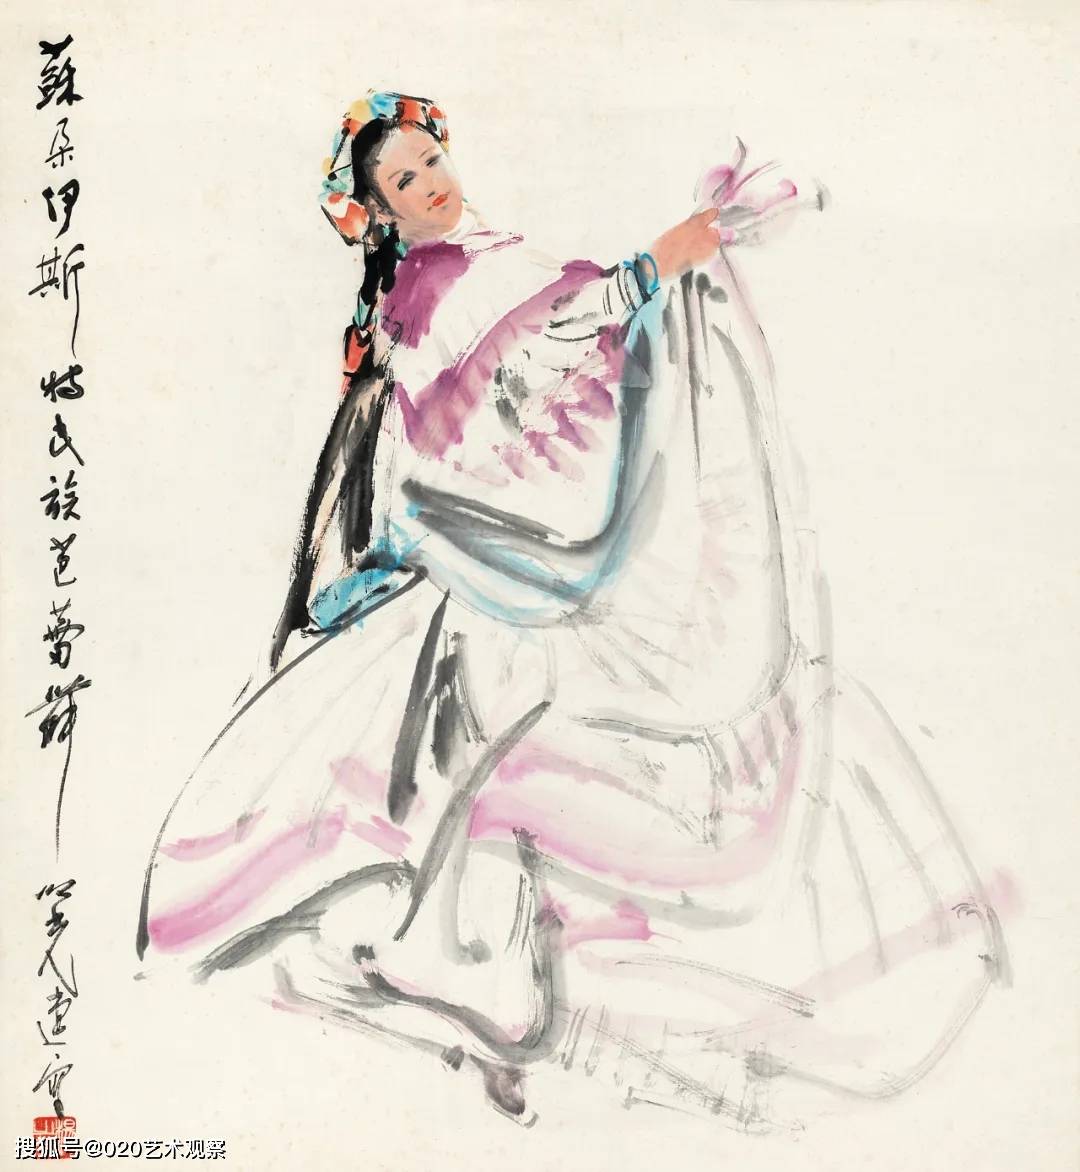 蘇朵伊斯特民族芭蕾舞
搜狐号@020艺术观察